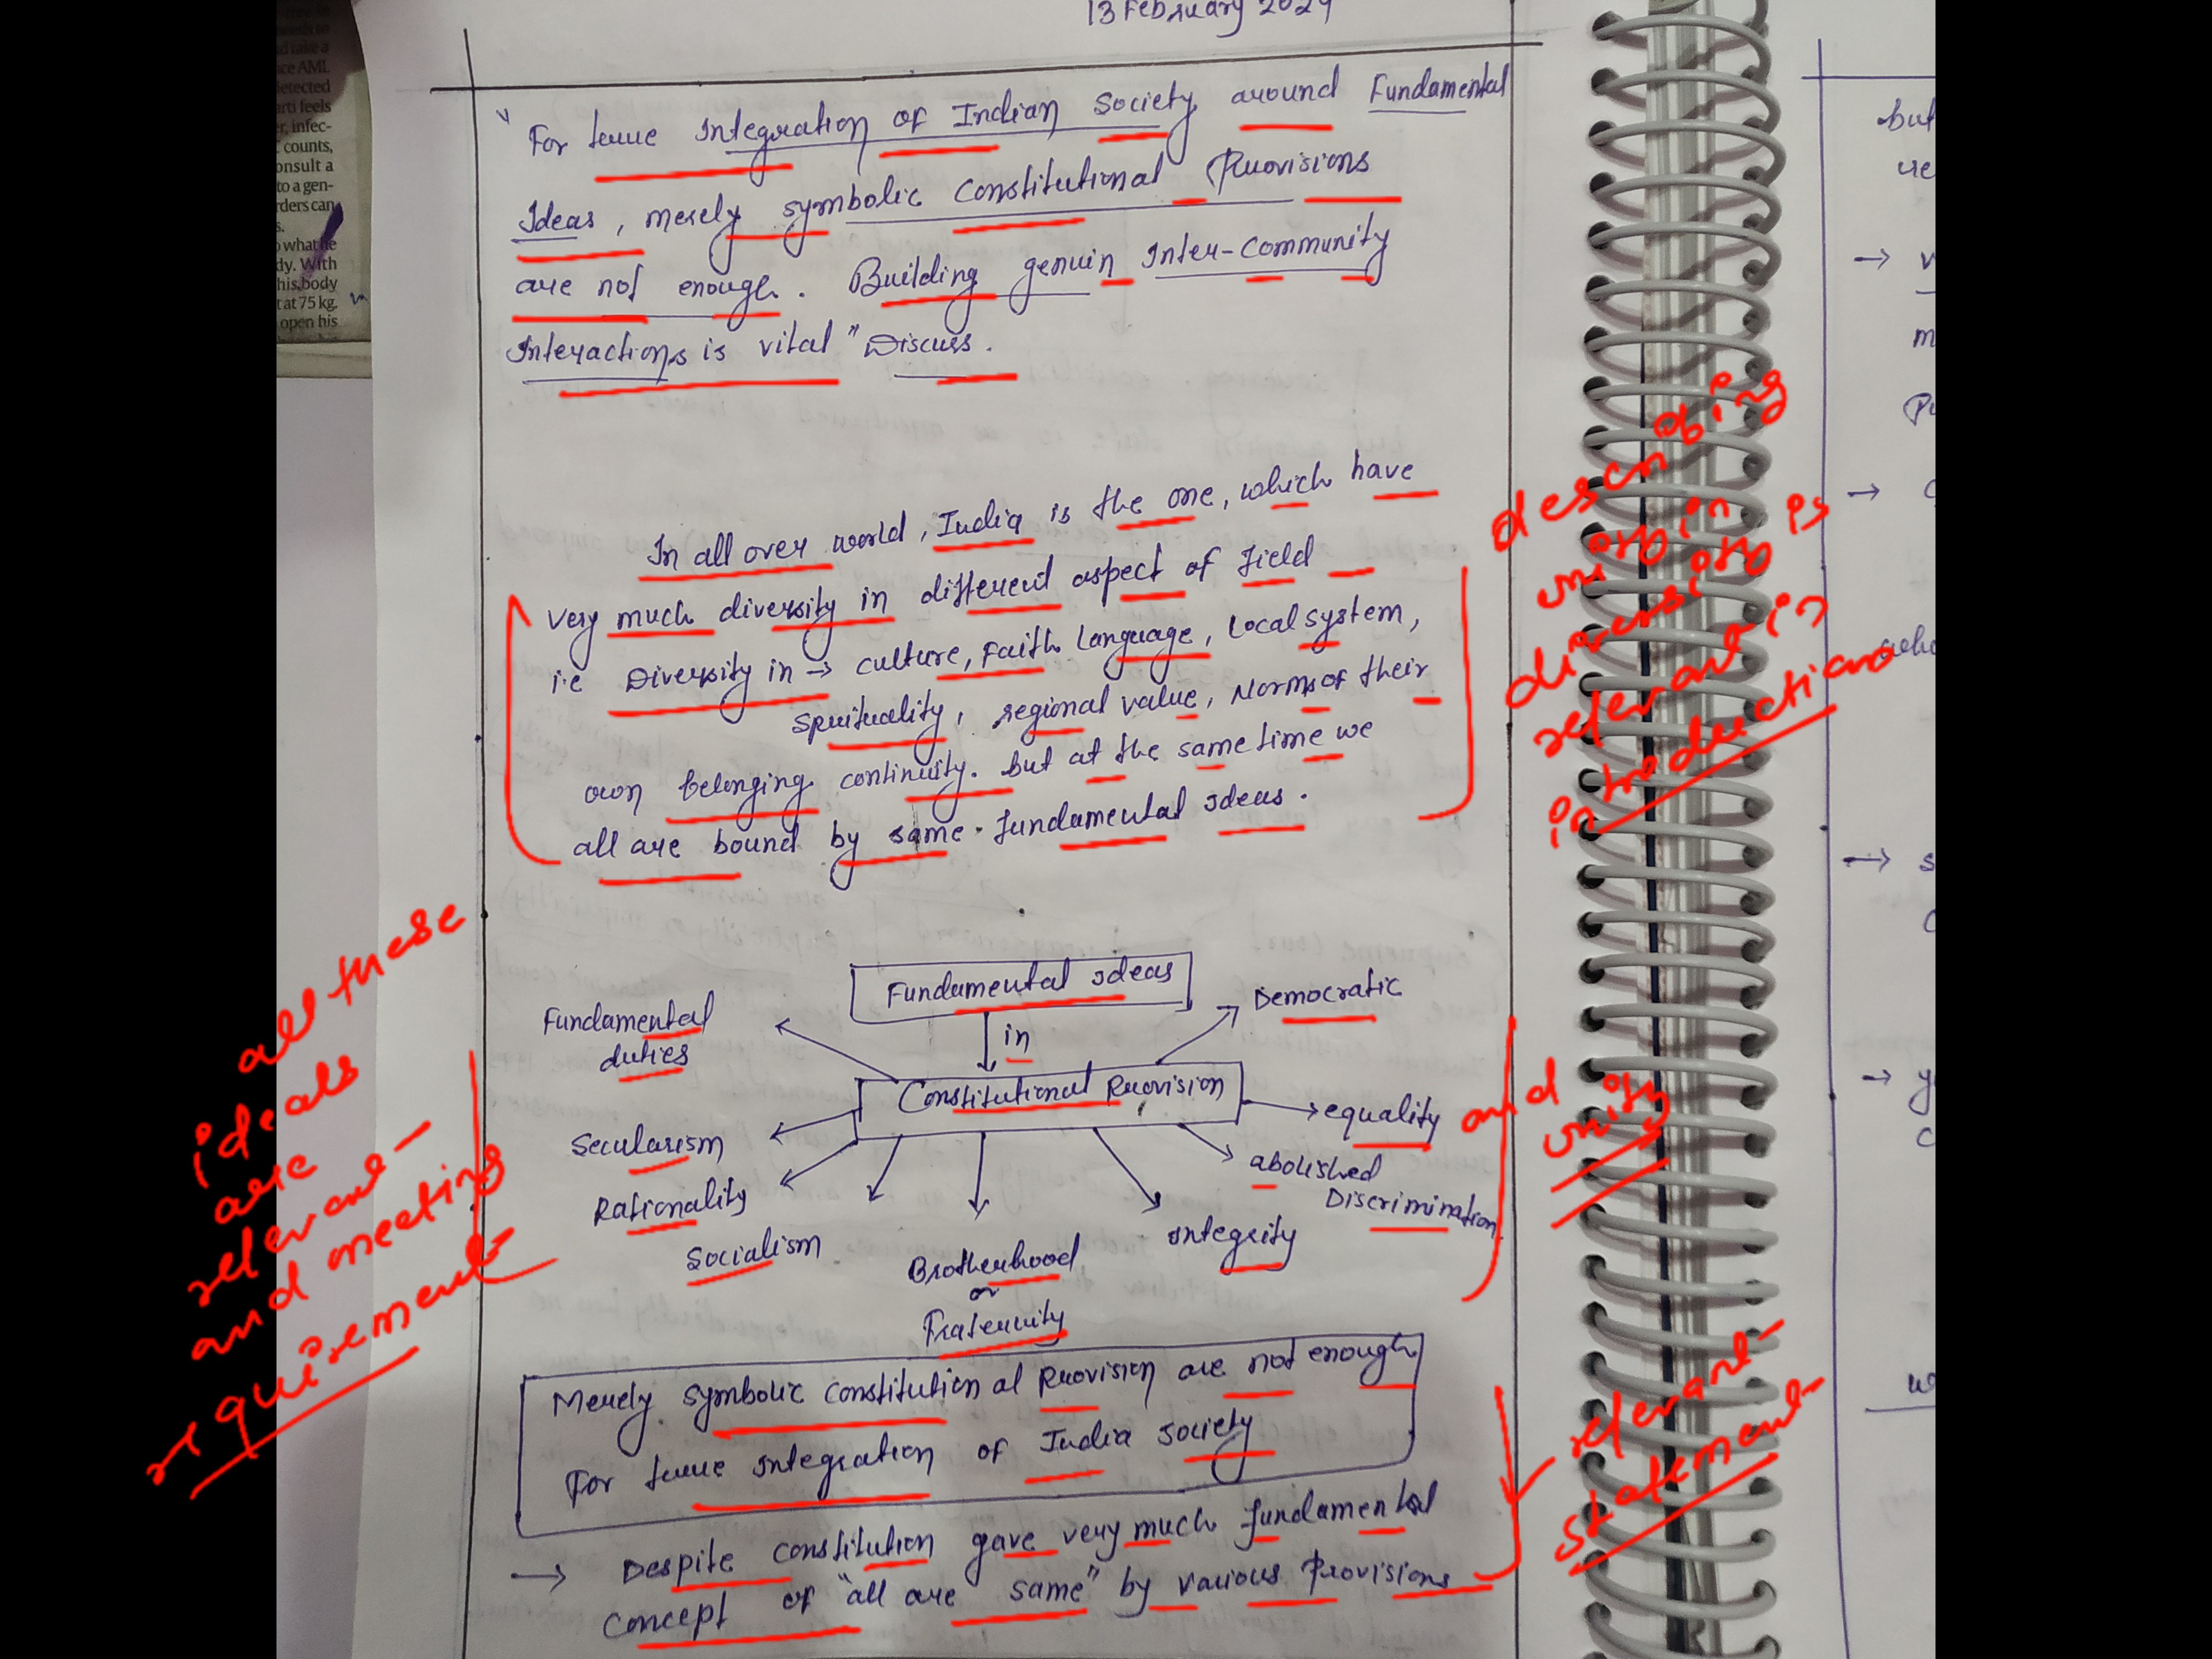 13 February 2024
"For true Integration of Indian Society around Fundamental
Ideas, merely symbolic Constitutional Provisions
are not enough. Building genuin Inter-Community
Interactions is vital" Discuss.
In all over world, India is the one, which have
very much diversity in different aspect of field
i.e Diversity in → culture, Faith, Language, Local system,
Sprituality, regional value, Norms of their
own belonging continuity. but at the same time we
all are bound by same fundamental ideas.
describing
unity in
diversity is
relevant in
introduction
Fundamental Ideas
in
Constitutional Provision
Fundamental
duties
Democratic
Secularism
equality
Rationality
abolished
Discrimination
Socialism
Brotherhood
or
Fraternity
Integrity
all these
ideals
are
relevant
and meeting
requirement
and
unity
Merely symbolic constitutional Provision are not enough
For true Integration of India society
relevant
statement
→ Despite constitution gave very much fundamental
concept of "all are same" by various Provisions
but
→
→
→
→
counts,
onsult a
to a gen-
rders can
what he
dy. With
his body
t at 75 kg.
open his
ce AML
detected
arti feels
r, infec-